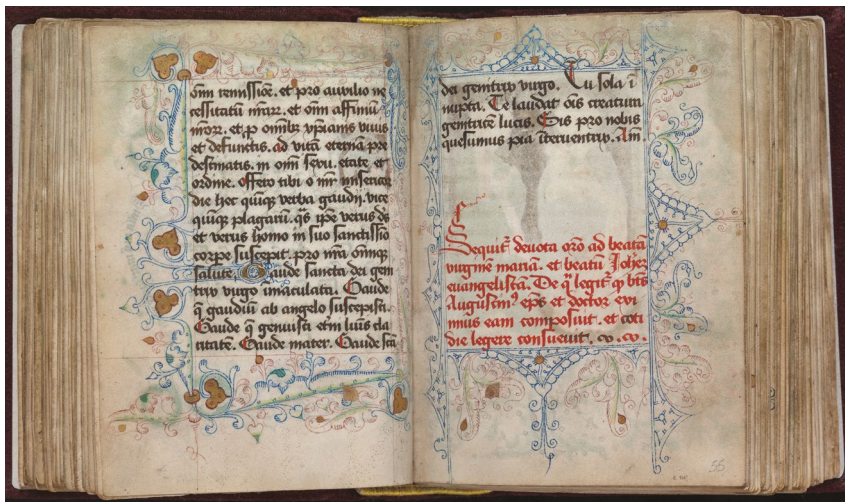 om̄ remissiōe. et pro auxilio ne
cessitatū nr̄ar̄. et om̄ affiniū
nr̄or̄. et p̱ omībꝫ xp̄ianis viuis
et defunctis. ad vitā eternā pre
destinatis. in om̄i sexu. etate et
ordine. offero tibi o mr̄ misericor
die hec quīqꝫ verba gaudij. vice
quīqꝫ plagarū. q̄s ip̄e verus ds̄
et verus homo in suo sanctissīo
corpe suscepit. pro nr̄a omīuqꝫ
salute. Gaude sancta dei gen
trix virgo īmaculata. Gaude
q̄ gaudiū ab angelo suscepisti.
Gaude q̄ genuisti etn̄i luīs cla
ritatē. Gaude mater. Gaude sctā
dei genitrix virgo. Tu sola ī
nupta. Te laudat oīs creatura
genitricē lucis. Sis pro nobis
quesumus pia īteruentrix. Am̄.
Sequit᷑ deuota orō ad beatā
virginē mariā. et beatū Joheꝫ
euangelistā. De q̄ legit᷑ ꝙ bt̄s
Augustinꝰ ep̄s et doctor exi
mius eam composuit. et coti
die legere consueuit.
55